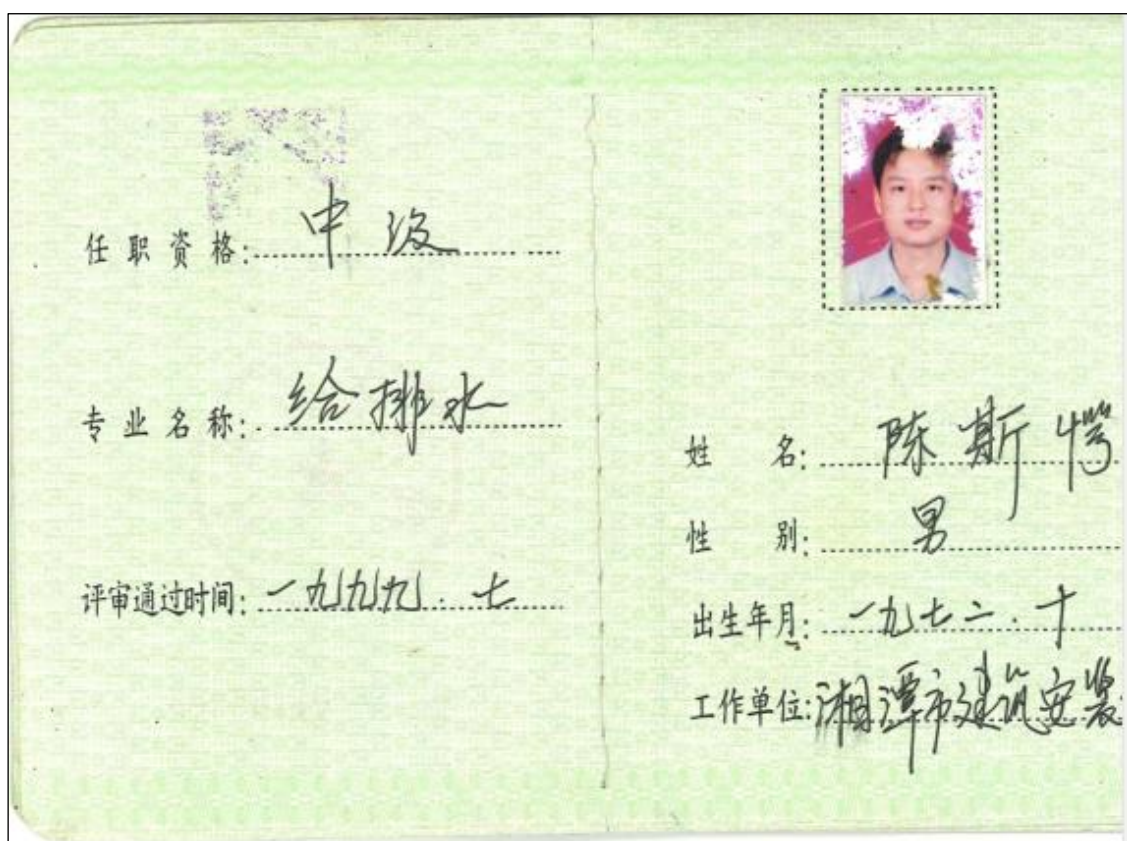 任职资格: 中级
专业名称: 给排水
评审通过时间: 一九九九.七
姓 名: 陈斯
性 别: 男
出生年月: 一九七二.十
工作单位: 湘潭市建筑安装